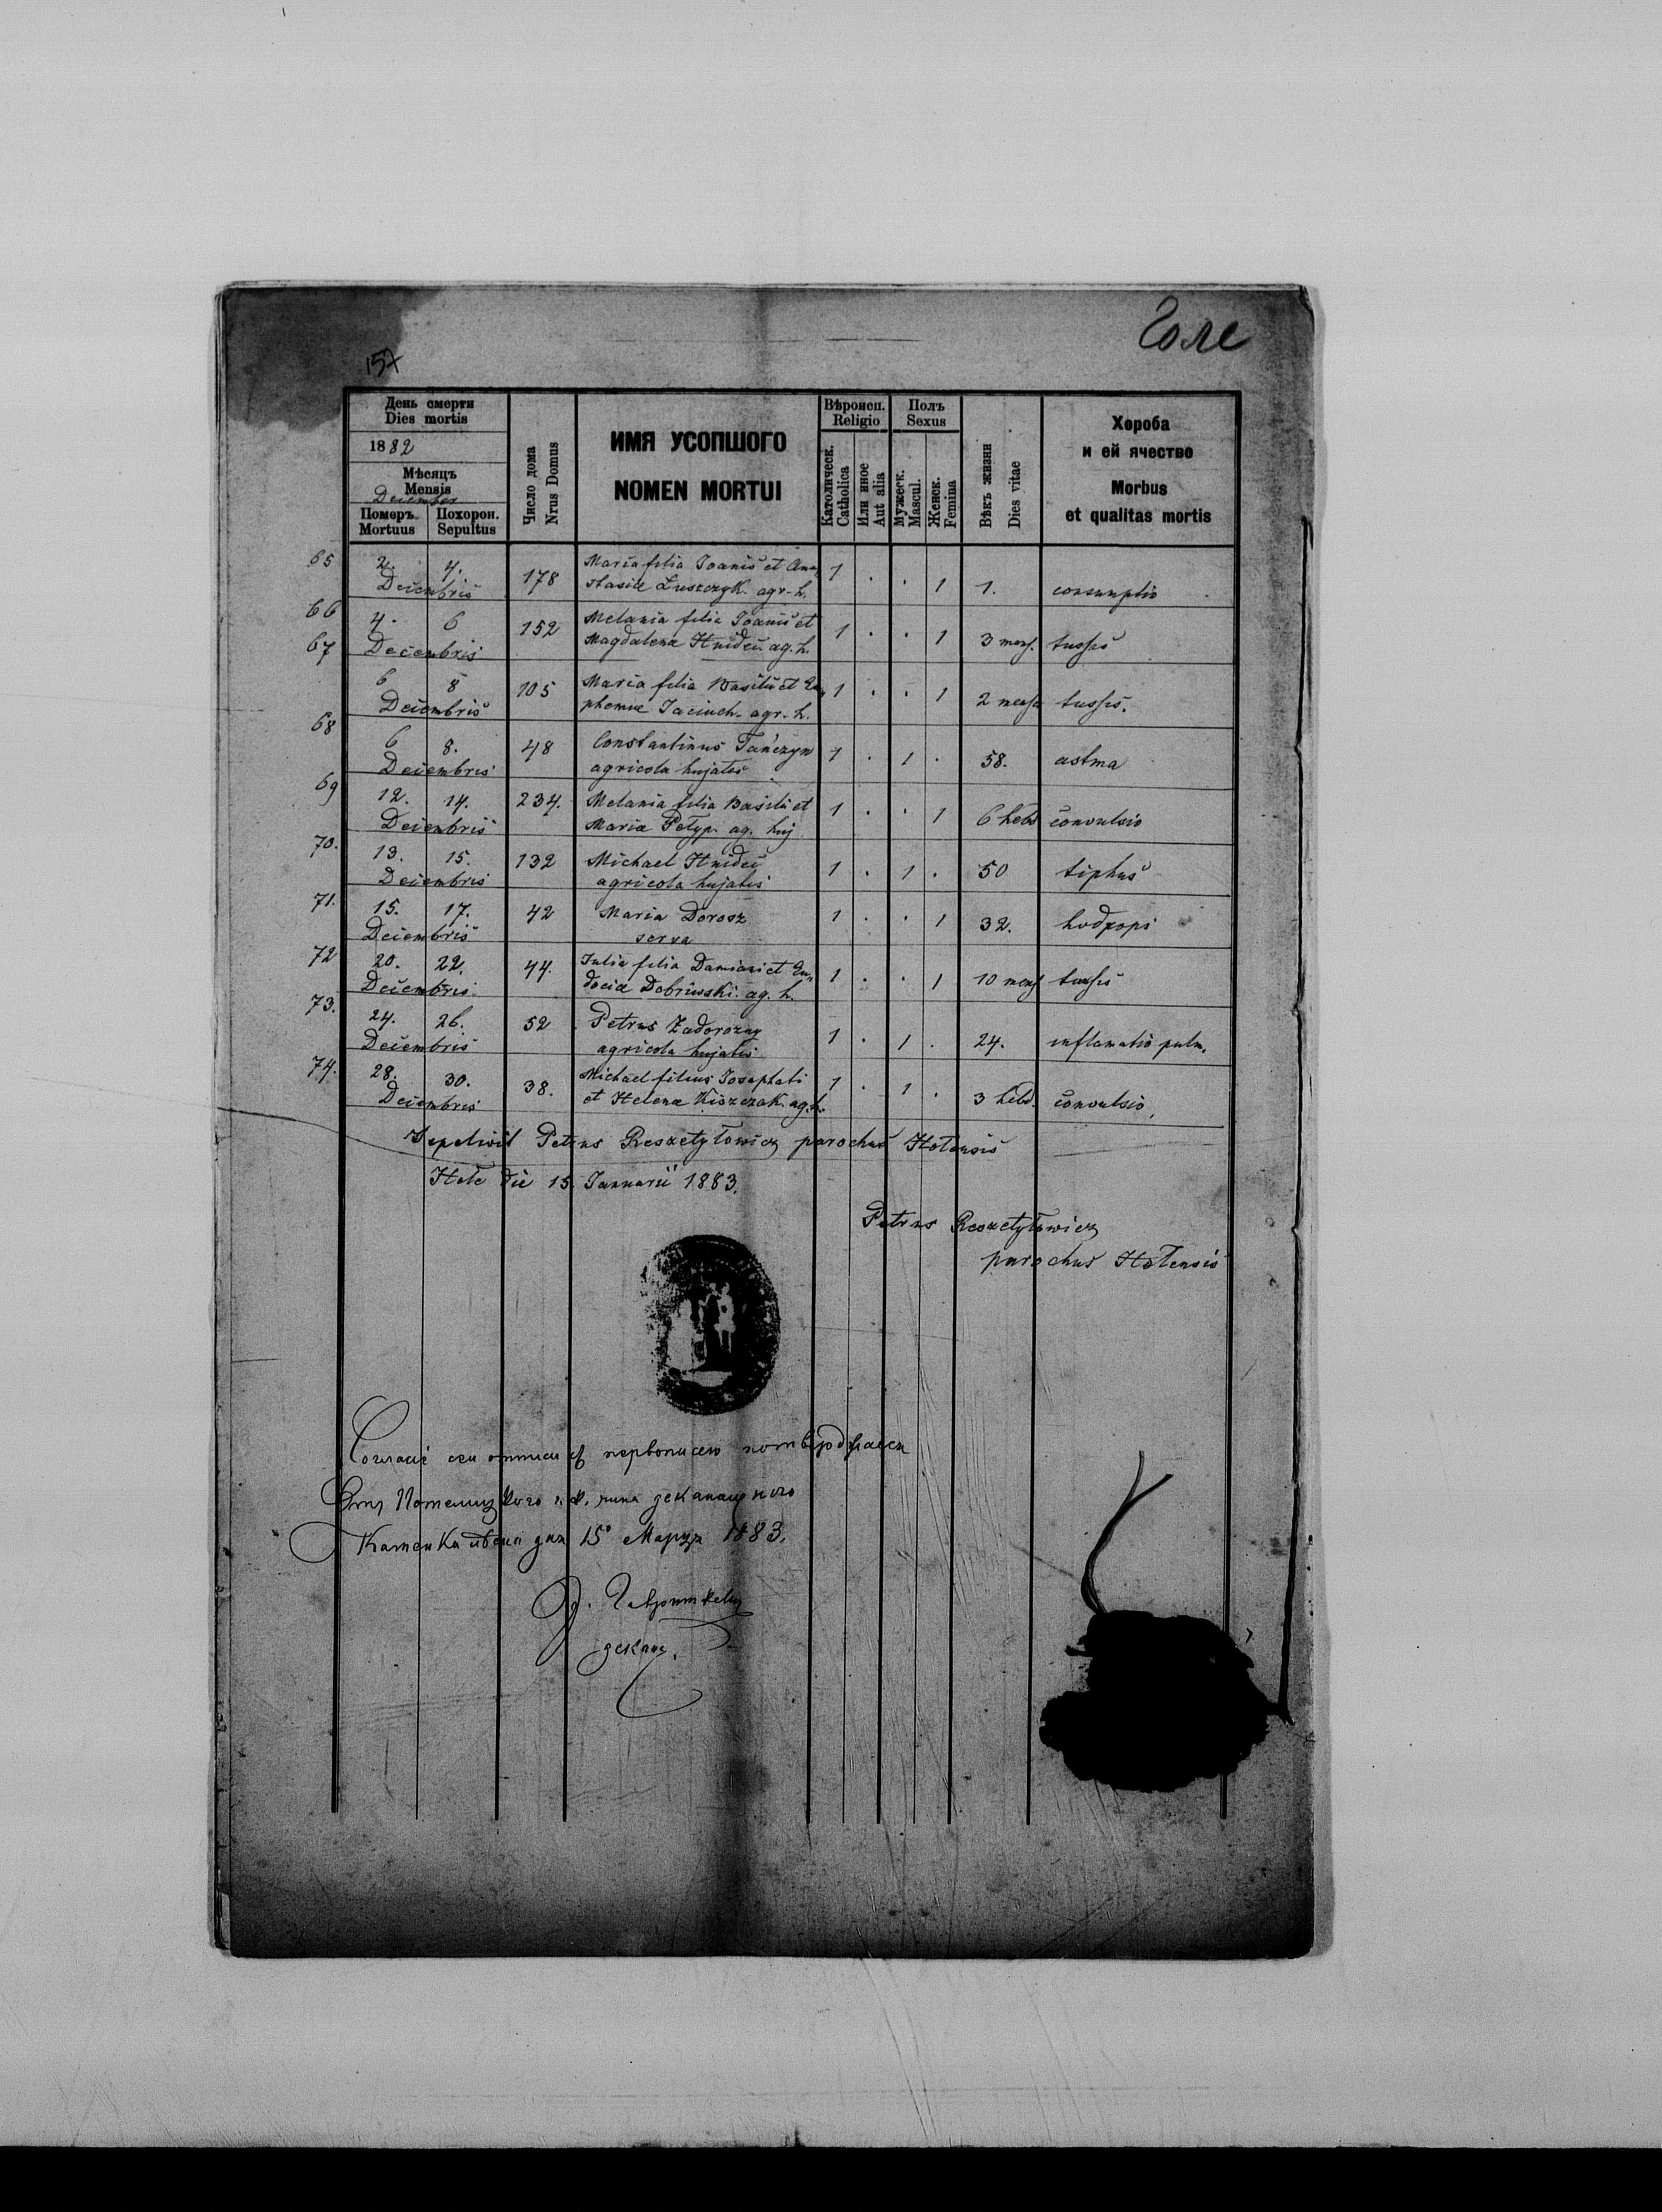 Голе
157
День смерти
Dies mortis
1882
Мѣсяцъ
Mensis
December
Померъ Похорон.
Mortuus Sepultus
Число дома
Nrus Domus
ИМЯ УСОПШОГО
NOMEN MORTUI
Вѣроисп.
Religio
Католическ.
Catholica
Или иное
Aut alia
Полъ
Sexus
Мужеск.
Mascul.
Женск.
Femina
Вѣкъ жизни
Dies vitae
Хороба
и ей ячество
Morbus
et qualitas mortis
65 2. 4. 178 Maria filia Joanis et Ana 1 . . 1 1. consumptio
Decembris stasiæ Luszczyk. agr. h.
66 4. 6 152 Melania filia Joanis et 1 . . 1 3 mens. tussis
Decembris Magdalena Hnideú ag. h.
67 6 8 105 Maria filia Basilii et Eu 1 . . 1 2 mens tussis.
Decembris phemiæ Jacinch. agr. h.
68 6 8. 48 Constantinus Tańczyn 1 . 1 . 58. astma
Decembris agricola hujatis
69 12. 14. 234. Melania filia Basilii et 1 . . 1 6 hebd convulsio
Decembris Maria Petyp. ag. huj
70. 13. 15. 132 Michael Hnideú 1 . 1 . 50 tiphus
Decembris agricola hujatis
71. 15. 17. 42 Maria Dorosz 1 . . 1 32. hydrops
Decembris serva
72 20. 22. 44. Julia filia Damiani et Eu 1 . . 1 10 mens tussis
Decembris docia Dobriwski. ag. h.
73. 24. 26. 52 Petrus Zadorozny 1 . 1 . 24. inflamatio pulm.
Decembris agricola hujatis
74. 28. 30. 38. Michael filius Josaphati 1 . 1 . 3 hebd. convulsio.
Decembris et Helena Kiszczak. ag. h.
Sepelivit Petrus Reszetyłowicz parochus Hołensis
Hołe die 15. Januarii 1883.
Petrus Reszetyłowicz
parochus Hołensis
первописею потверджаеся
деканацкого
Каменка дня 15 Марця 1883.
декан.